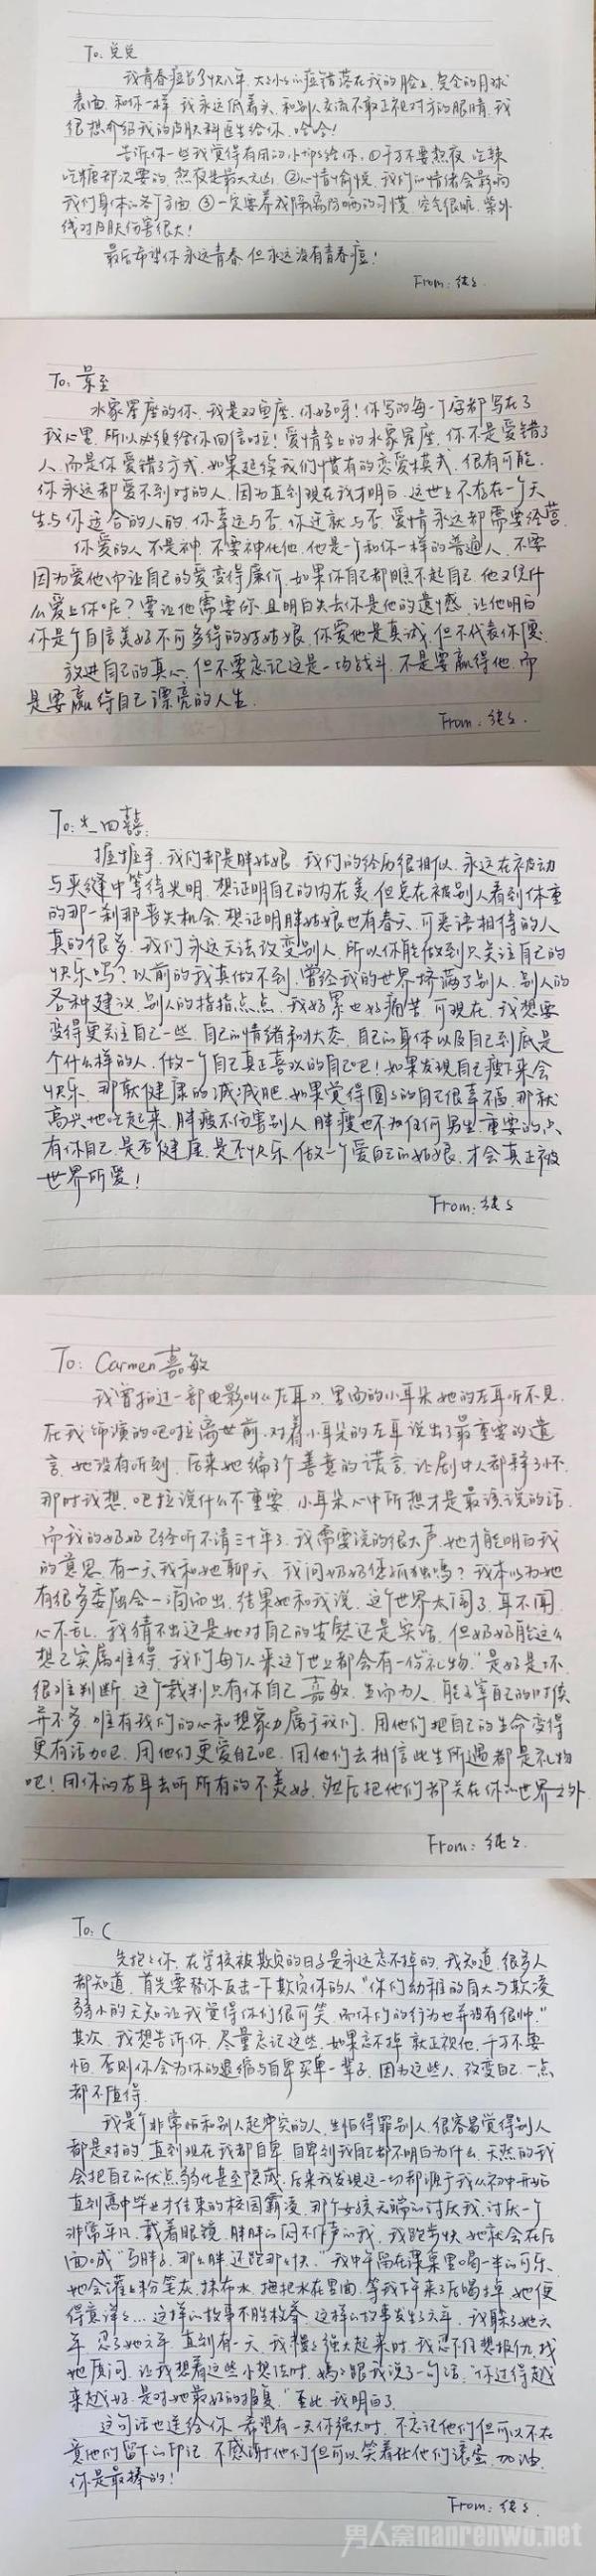 To: 兑兑
我青春痘长了快八年,大大小小的痘错落在我的脸上,完全的月球
表面,和你一样,我永远低着头,和别人交流不敢正视对方的眼睛,我
很想介绍我的皮肤科医生给你,哈哈!
告诉你一些我觉得有用的小tips给你,①千万不要熬夜,吃辣
吃糖都次要的,熬夜是最大元凶,②心情愉悦,我们的情绪会影响
我们身体的各个方面,③一定要养成隔离防晒的习惯,空气很脏,紫外
线对皮肤伤害很大!
最后希望你永远青春,但永远没有青春痘!
From: 纯纟
To: 景至
水象星座的你,我是双鱼座,你好呀!你写的每一个字都写在了
我心里,所以必须给你回信啦!爱情至上的水象星座,你不是爱错了
人,而是你爱错了方式,如果延续我们惯有的恋爱模式,很有可能,
你永远都爱不到对的人,因为直到现在我才明白,这世上不存在一个天
生与你适合的人的,你幸运与否,你迁就与否,爱情永远都需要经营.
你爱的人不是神,不要神化他,他是一个和你一样的普通人,不要
因为爱他而让自己的爱变得廉价,如果你自己都瞧不起自己,他又凭什
么爱上你呢?要让他需要你,且明白失去你是他的遗憾,让他明白
你是个自信美好不可多得的好姑娘,你爱他是真诚,但不代表你傻.
放进自己的真心,但不要忘记这是一场战斗,不是要赢得他,而
是要赢得自己漂亮的人生.
From: 纯纟
To: 尢四囍:
握握手,我们都是胖姑娘,我们的经历很相似,永远在被动
与夹缝中等待光明,想证明自己的内在美,但总在被别人看到体重
的那一刹那丧失机会,想证明胖姑娘也有春天,可恶语相待的人
真的很多,我们永远无法改变别人,所以你能做到只关注自己的
快乐吗?以前的我真做不到,曾经我的世界挤满了别人,别人的
各种建议,别人的指指点点,我好累也好痛苦,可现在,我想要
变得更关注自己一些,自己的情绪和状态,自己的身体以及自己到底是
个什么样的人,做一个自己真正喜欢的自己吧!如果发现自己瘦下来会
快乐,那就健康的减减肥,如果觉得圆圆的自己很幸福,那就
高兴地吃起来,胖瘦不伤害别人,胖瘦也不如任何男生重要的点,
有你自己,是否健康,是否快乐,做一个爱自己的姑娘,才会真正被
世界所爱!
From: 纯纟
To: Carmen嘉敏
我曾拍过一部电影叫《左耳》,里面的小耳朵她的左耳听不见,
在我饰演的吧啦离世前,对着小耳朵的左耳说出了最重要的遗
言,她没有听到,后来她编了个善意的谎言,让剧中人都释了怀.
那时我想,吧拉说什么不重要,小耳朵心中所想才是最该说的话,
而我的奶奶已经听不清三十年了,我需要说的很大声,她才能明白我
的意思,有一天我和她聊天,我问奶奶您孤独吗?我本以为她
有很多委屈会一涌而出,结果她和我说,这个世界太闹了,耳不闻,
心不乱,我猜不出这是她对自己的安慰还是实话,但奶奶能这么
想已实属难得,我们每个人来这个世上都会有一份"礼物",是好是坏
很难判断,这个裁判只有你自己,嘉敏,生而为人,能主宰自己的时候
并不多,唯有我们的心和想象力属于我们,用他们把自己的生命变得
更有活力吧,用他们更爱自己吧,用他们去相信此生所遇都是礼物
吧!用你的右耳去听所有的不美好,然后把他们都关在你的世界之外.
From: 纯纟.
To: C
先抱抱你,在学校被欺负的日子是永远忘不掉的,我知道,很多人
都知道,首先要替你反击一下欺负你的人"你们幼稚的自大与欺凌
弱小的无知让我觉得你们很可笑,而你们的行为也并没有很帅."
其次,我想告诉你,尽量忘记这些,如果忘不掉,就正视他,千万不要
怕,否则你会为你的退缩与自卑买单一辈子,因为这些人,改变自己,一点
都不值得.
我是个非常怕和别人起冲突的人,生怕得罪别人,很容易觉得别人
都是对的,直到现在我都自卑,自卑到我自己都不明白为什么,天然的我
会把自己的优点弱化甚至隐藏,后来我发现这一切都源于我从初中开始
直到高中毕业才结束的校园霸凌,那个女孩无端的讨厌我,讨厌一个
非常平凡,戴着眼镜,胖胖的闷不作声的我,我跑步快,她就会在后
面喊"马胖子,那么胖,还跑那么快",我中午留在课桌里喝一半的可乐,
她会灌上粉笔灰,抹布水,拖把水在里面,等我下午来了后喝掉,她便
得意洋洋…这样的故事不胜枚举,这样的故事发生了六年,我躲了她六
年,忍了她六年,直到有一天,我慢慢强大起来时,我忍不住想报仇,找
她质问,让我想着这些小想法时,妈妈跟我说了一句话,"你过得越
来越好,是对她最好的报复."至此,我明白了.
这句话也送给你,希望有一天你强大时,不忘记他们但可以不在
意他们留下的印记,不感谢他们但可以笑着让他们滚蛋,加油,
你是最棒的!
From: 纯纟.
男人窝nanrenwo.net